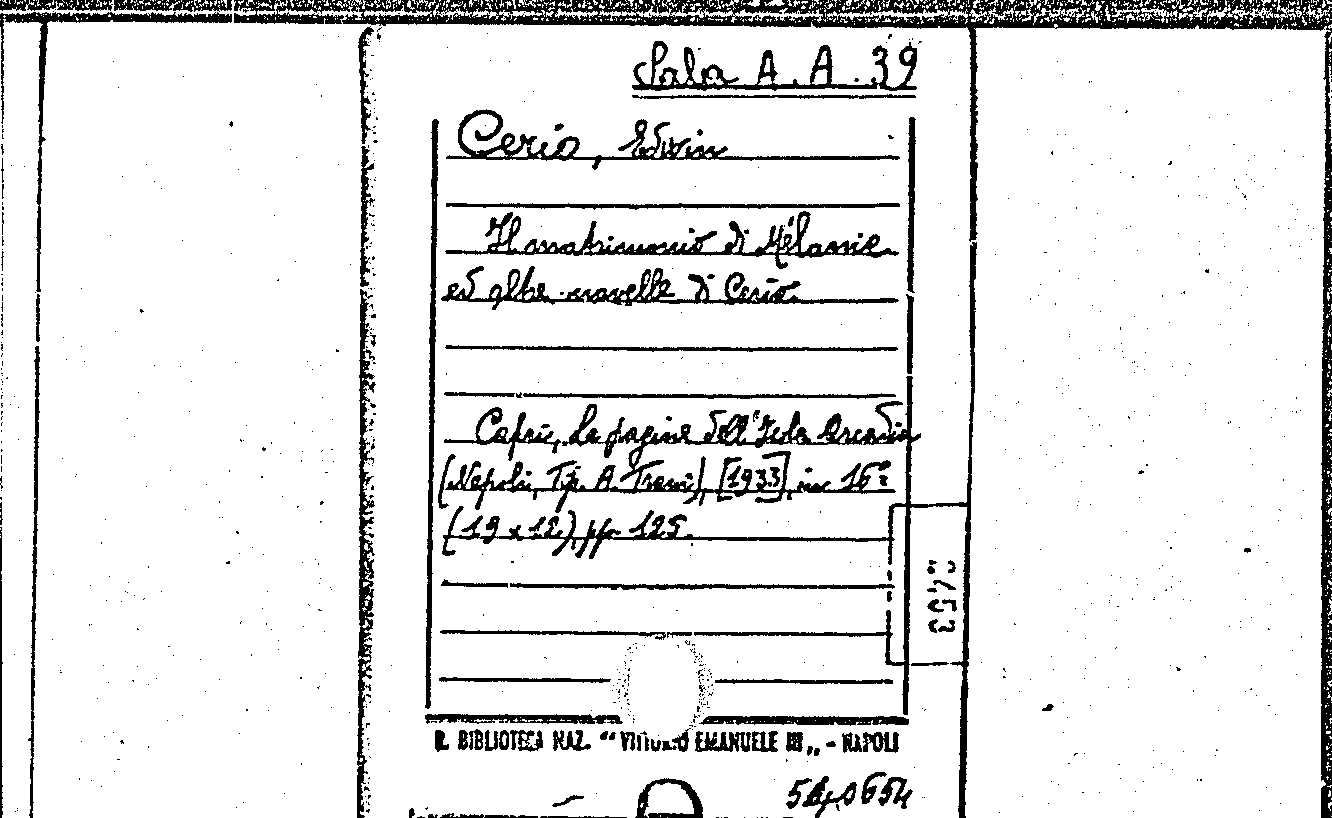 Sala A.A.39
Cerio, Edwin
Il matrimonio di Mélanie
ed altre novelle di Cerio.
Capri, La pagine dell'Isola Arcadia
(Napoli, Tip. A. Trani), [1933], in 16º
(19 x 12), pp. 125.
R. BIBLIOTECA NAZ. “VITTORIO EMANUELE III„ - NAPOLI